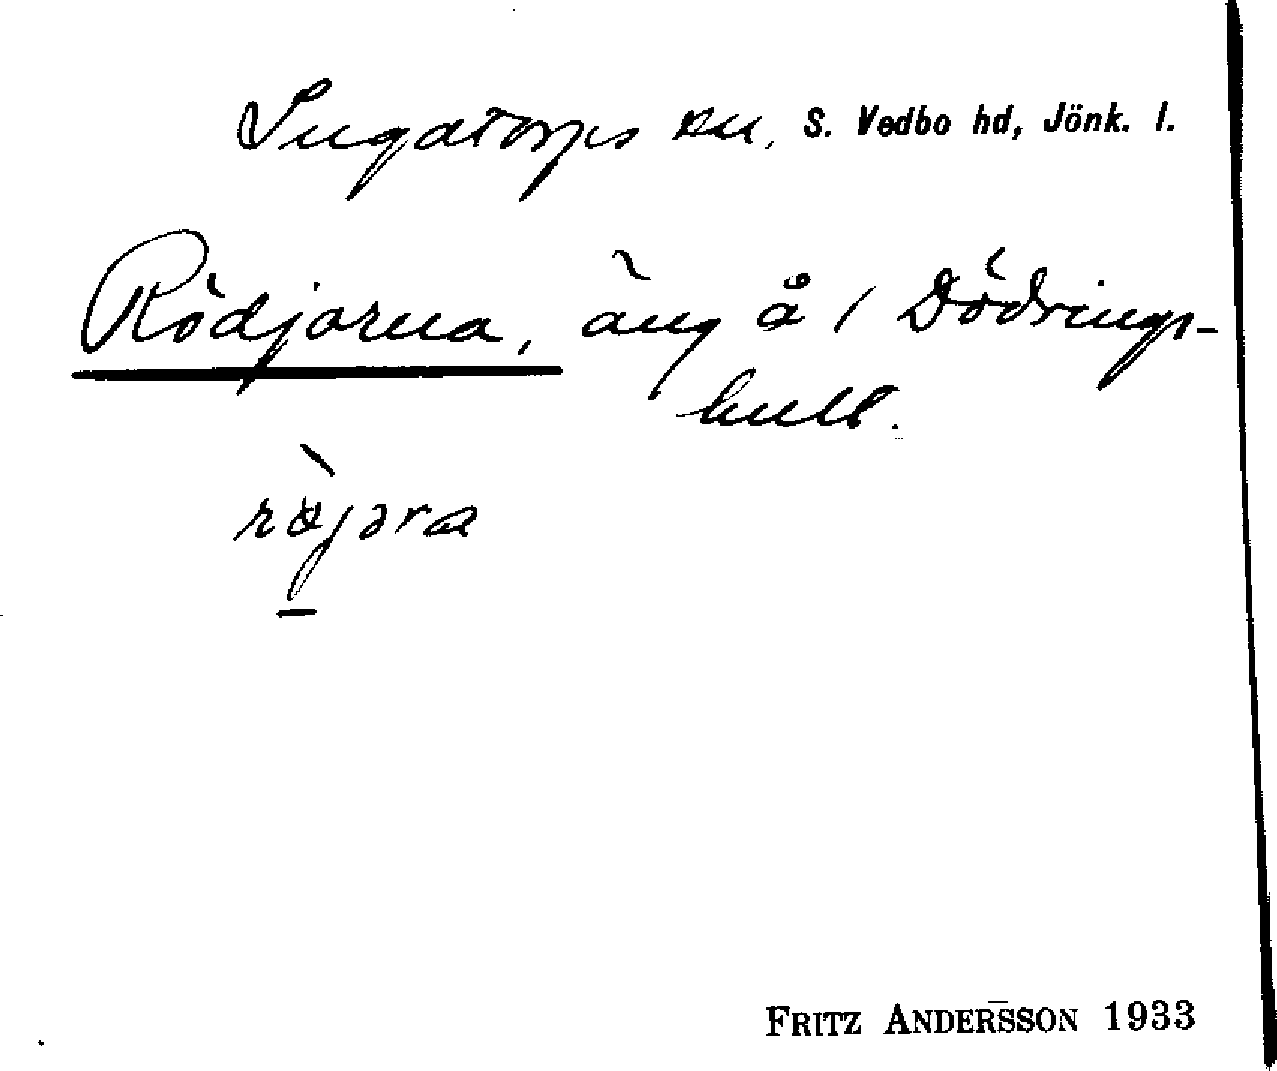 Ingatorps sn, S. Vedbo hd, Jönk. l.
Rödjorna, äng å / Dödrings-
hult.
röjəra
FRITZ ANDERSSON 1933